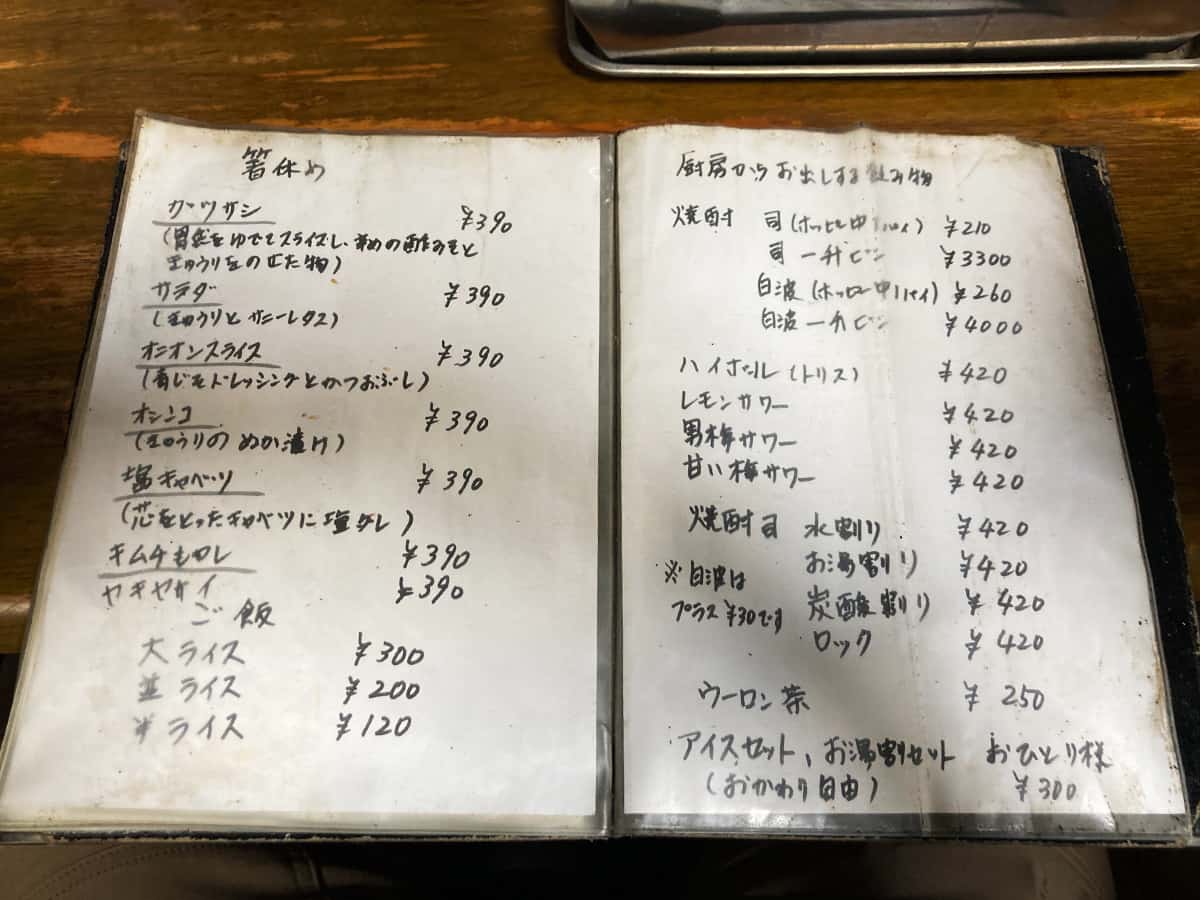 箸休め
ガツサシ ¥390
(胃袋をゆでてスライスし、辛めの酢みそと
きゅうりをのせた物)
サラダ ¥390
(きゅうりとサニーレタス)
オニオンスライス ¥390
(青じそドレッシングとかつおぶし)
オシンコ ¥390
(きゅうりのぬか漬け)
塩キャベツ ¥390
(芯をとったキャベツに塩ダレ)
キムチもりもり ¥390
ヤキヤサイ ¥390
ご飯
大ライス ¥300
並ライス ¥200
半ライス ¥120
厨房からお出しする飲み物
焼酎 司(ホッピー中1パイ) ¥210
司 一升ビン ¥3300
白波(ホッピー中1パイ) ¥260
白波 一升ビン ¥4000
ハイボール(トリス) ¥420
レモンサワー ¥420
男梅サワー ¥420
甘い梅サワー ¥420
焼酎司 水割り ¥420
お湯割り ¥420
※白波は
プラス¥30です
炭酸割り ¥420
ロック ¥420
ウーロン茶 ¥250
アイスセット、お湯割セット おひとり様
(おかわり自由) ¥300